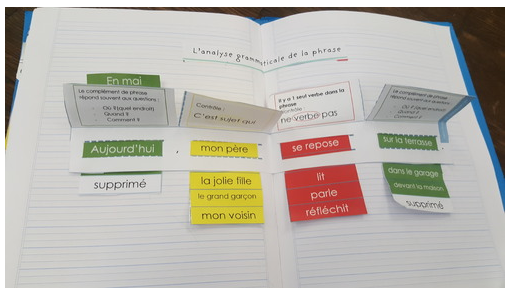 L'analyse grammaticale de la phrase
En mai
Le complément de phrase
répond souvent aux questions :
Où ?(quel endroit)
Quand ?
Comment ?
Aujourd'hui
,
supprimé
Contrôle :
C'est sujet qui
mon père
la jolie fille
le grand garçon
mon voisin
Il y a 1 seul verbe dans la
phrase
Contrôle :
ne verbe pas
se repose
lit
parle
réfléchit
Le complément de phrase
répond souvent aux questions :
Quand ?
Comment ?
sur la terrasse
.
dans le garage
devant la maison
supprimé